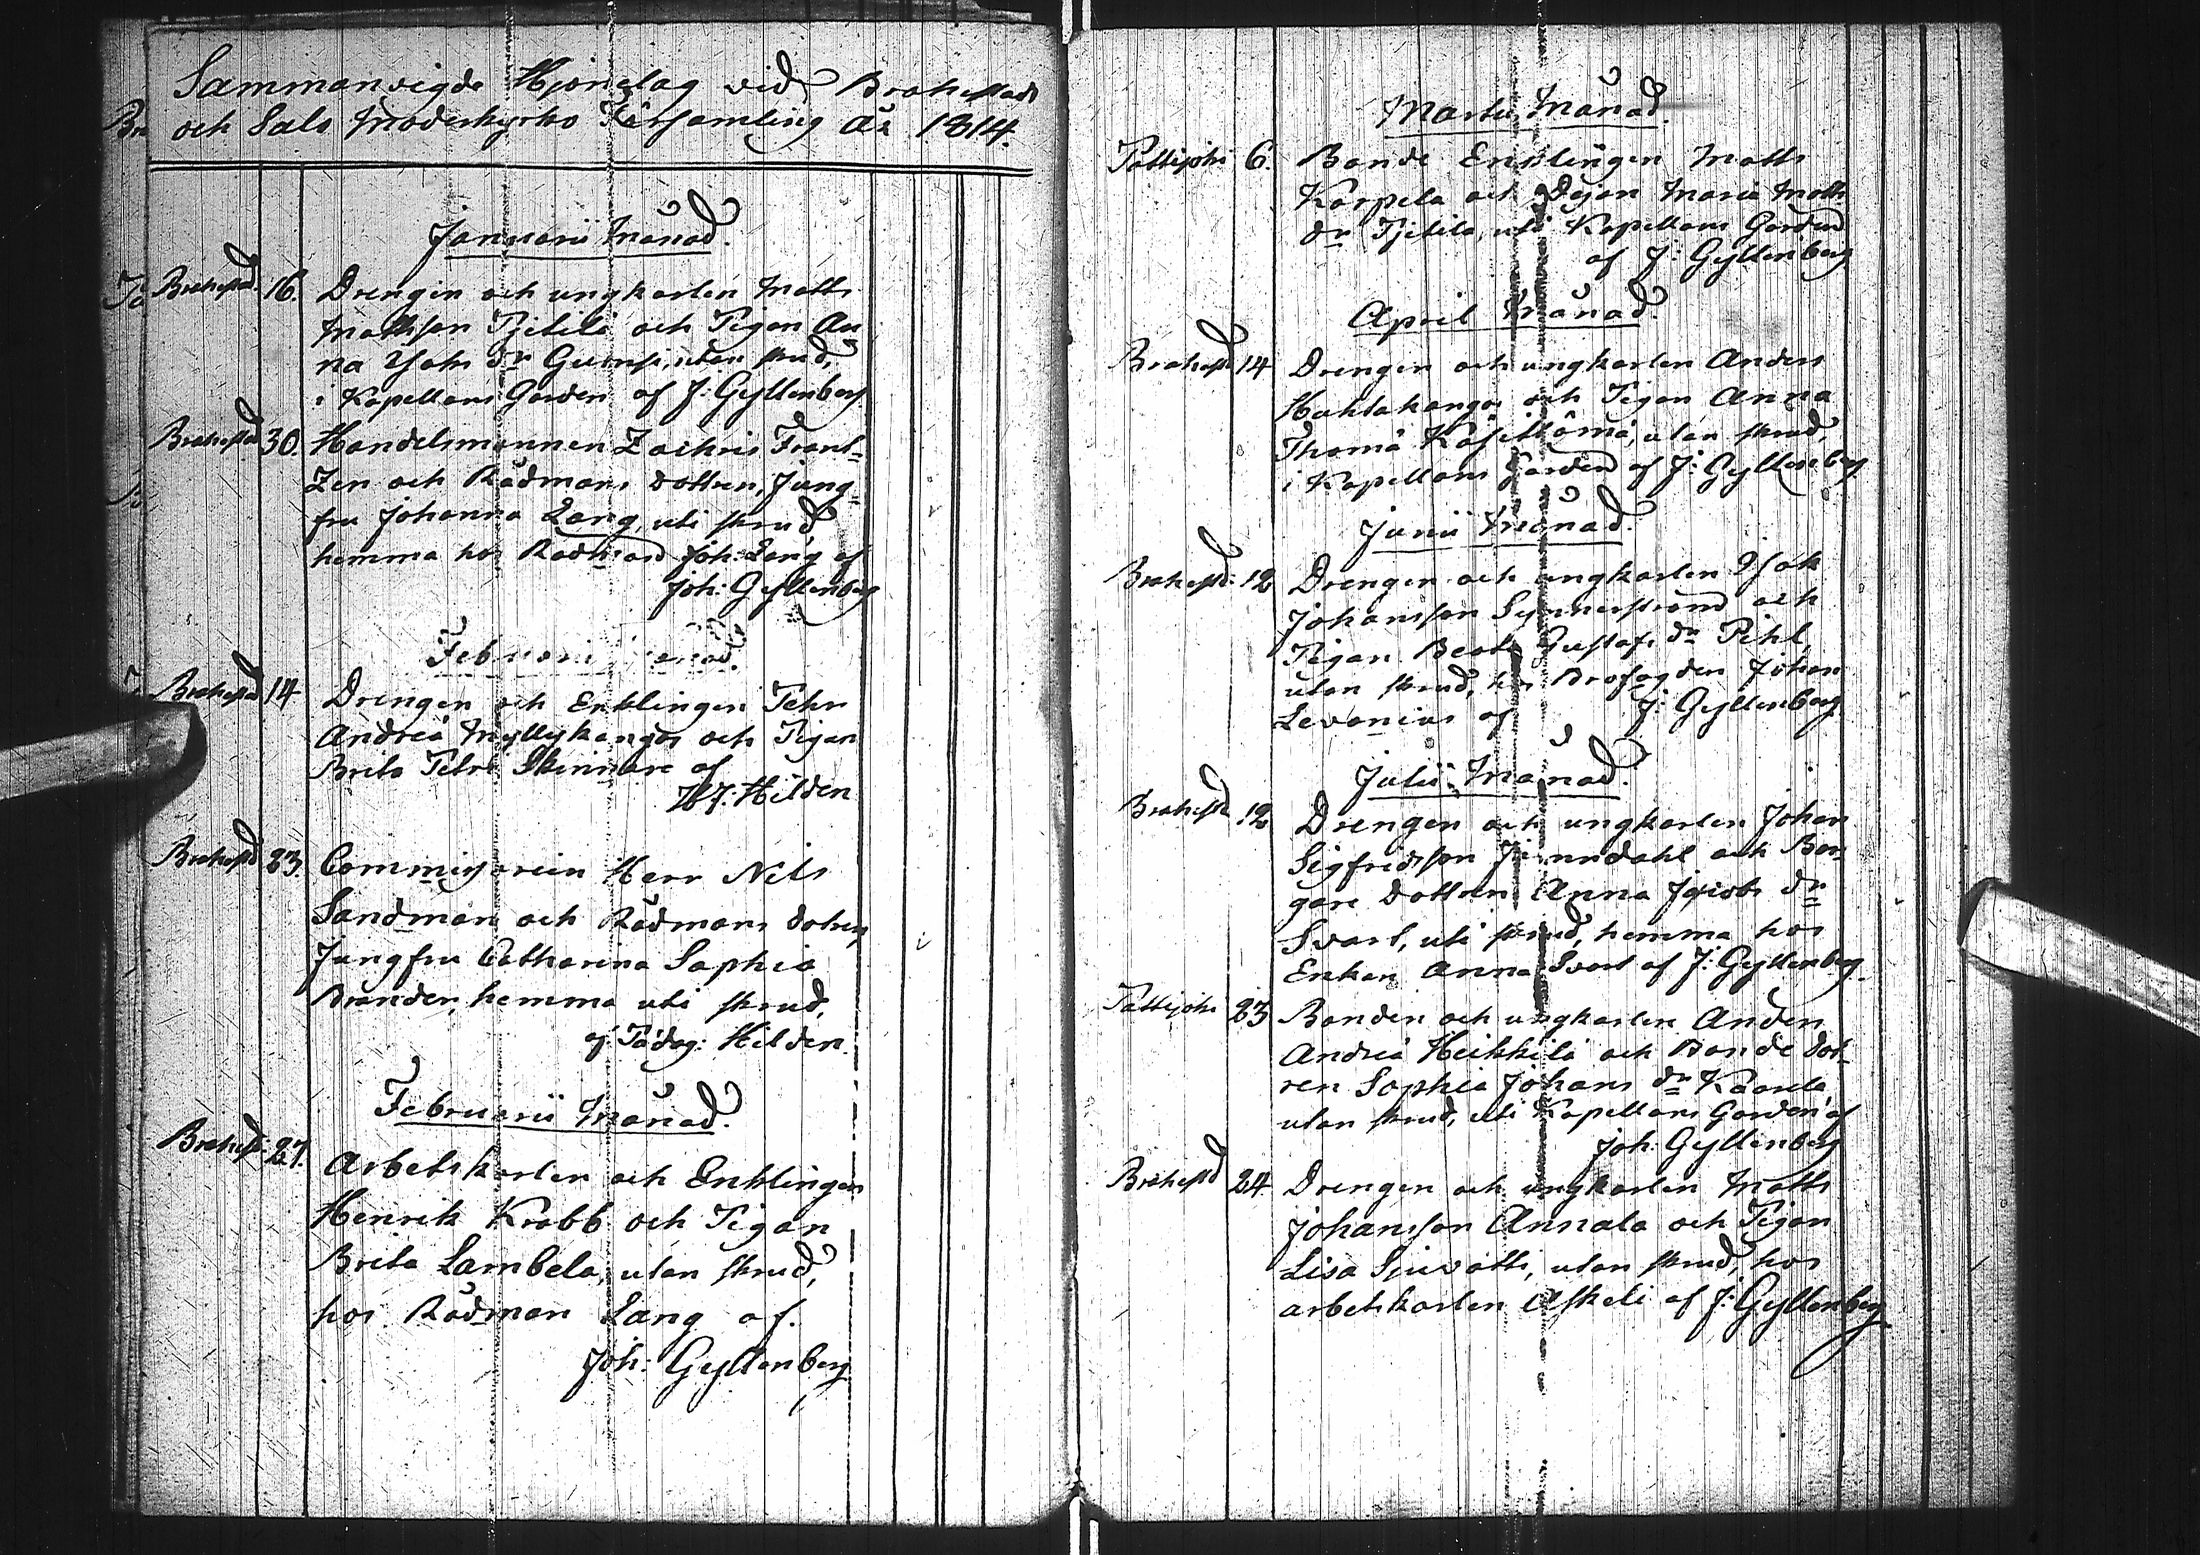 Sammanvigde Hjonelag vid Brahestads
och Salo Moderkyrko Församling År 1814.
Januarii Månad.
Brahestad. 16. Drengen och ungkarlen Matts
Mattsson Pjetilä och Pigan An
na Isaks dr utan skrud,
i Kapellans Gården af J: Gyllenberg
Brahestad 30. Handelsmannen Zachris Frant-
zen och Rådmans dottren, Jung-
fru Johanna Lang, uti skrud
hemma hos Rådman Joh: Lang af
Joh: Gyllenberg
Februarii Månad.
Brahestad 14 Drengen och Enklingen Petter
Andreä Myllykangas och Pigan
Brita Petri Skinnare af
Hilden
Brahestad 23. Commissarien Herr Nils
Sandman och Rådmans dotren
Jungfru Catharina Sophia
Brander, hemma uti skrud,
af Pädag: Hilden.
Februarii Månad.
Brahest: 27. Arbetskarlen och Enklingen
Henrik Krabb och Pigan
Brita Lambela, utan skrud,
hos Rådman Lang af.
Joh: Gyllenberg
Martii Månad.
Pattijoki 6. Bonde Enklingen Matts
Karpela och Pigan Maria Matts
dr Pjetilä, uti Kapellans Gården
af J: Gyllenberg
April Månad.
Brahestd 14 Drengen och ungkarlen Anders
Huhtakangas och Pigan Anna
Thomä utan skrud,
i Kapellans Gården af J: Gyllenberg
Junii Månad.
Brahestd: 12 Drengen och ungkarlen Isak
Johansson Synnerstrand och
Pigan Beata Gustafs dr Pihl,
utan skrud, hos Brofogden Johan
Levonius af J: Gyllenberg
Julii Månad.
Brahestd 12 Drengen och ungkarlen Johan
Sigfridsson och Bor-
gare dottren Anna Jacobs dr
Svart, uti skrud, hemma hos
Enkan Anna Svart af J: Gyllenberg.
Pattijoki 23 Bonden och ungkarlen Anders
Andreä Heikkilä och Bonde dot-
ren Sophia Johans dr Kaarela
utan skrud, uti Kapellans Gården af
Joh: Gyllenberg
Brahestd 24. Drengen och ungkarlen Matts
Johansson Annala och Pigan
Lisa utan skrud, hos
arbetskarlen af J: Gyllenberg